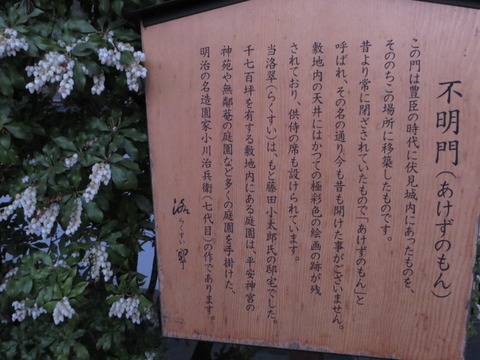 不明門(あけずのもん)
この門は豊臣の時代に伏見城内にあったものを、
そののちこの場所に移築したものです。
昔より常に閉ざされていたもので「あけずのもん」と
呼ばれ、その名の通り今も昔も開けた事がございません。
敷地内の天井にはかつての極彩色の絵画の跡が残
されており、供侍の席も設けられています。
当洛翠(らくすい)は、もと藤田小太郎氏の邸宅でした。
千七百坪を有する敷地内にある庭園は、平安神宮の
神苑や無鄰菴の庭園など多くの庭園を手掛けた、
明治の名造園家小川治兵衛(七代目)の作であります。
洛翠
らくすい